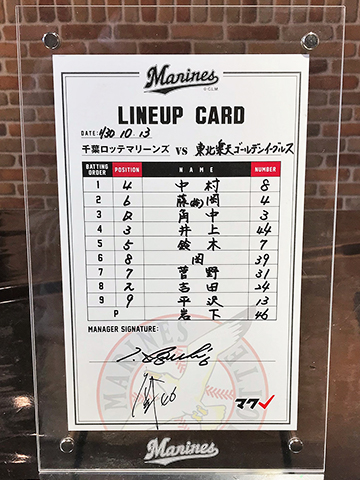 Marines
© C.L.M.
LINEUP CARD
DATE: H30 10 13
千葉ロッテマリーンズ vs 東北楽天ゴールデンイーグルス
BATTING ORDER POSITION NAME NUMBER
1 4 中村 8
2 6 藤岡(裕) 4
3 D 角中 3
4 3 井上 44
5 5 鈴木 7
6 8 岡 39
7 7 菅野 31
8 2 吉田 24
9 9 平沢 13
P 岩下 46
MANAGER SIGNATURE:
46
マワ
Marines